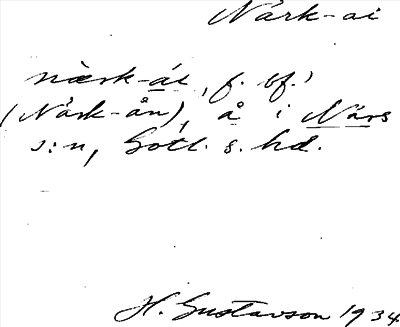 Närk-ai
närk-ái, f. bf.
(Närk-ån), å i När's
s:n, Gotl. s. hd.
H. Gustavson 1934